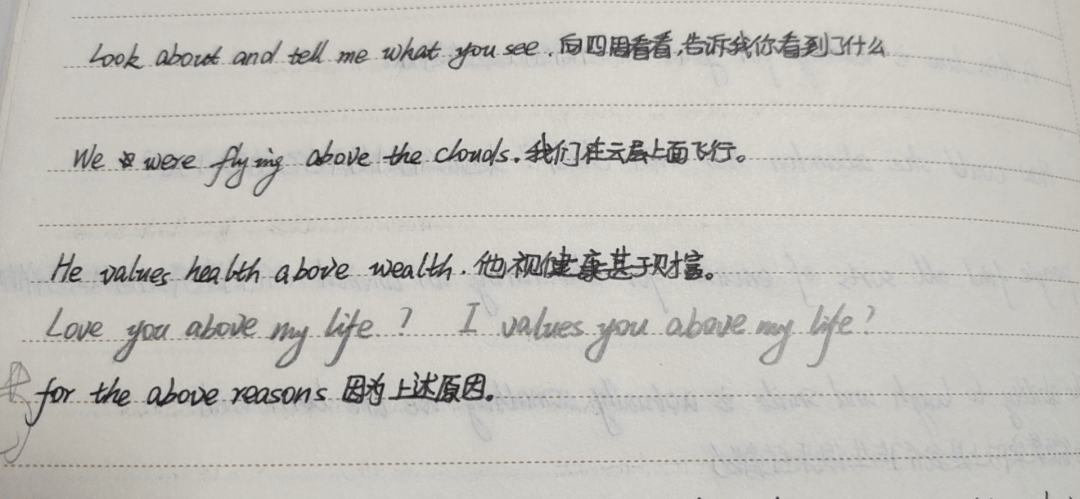 Look about and tell me what you see. 向四周看看,告诉我你看到了什么
We were flying above the clouds. 我们在云层上面飞行。
He values health above wealth. 他视健康甚于财富。
Love you above my life? I values you above my life?
for the above reasons 因为上述原因。